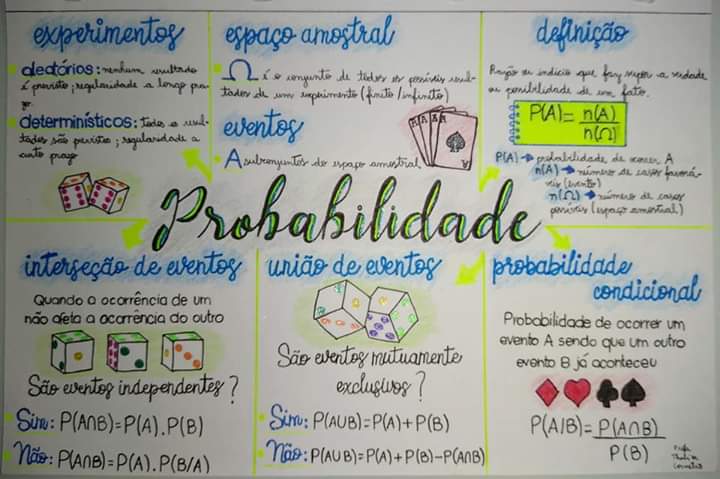 experimentos
aleatórios: nenhum resultado
é previsto; regularidade a longo pra-
zo.
determinísticos: todos os resul-
tados são previstos; regularidade a
curto prazo
espaço amostral
Ω é o conjunto de todos os possíveis resul-
tados de um experimento (finito/infinito)
eventos
A subconjuntos do espaço amostral
A A A A
definição
Razão ou indício que faz supor a verdade
ou possibilidade de um fato.
P(A) = n(A)
n(Ω)
P(A) → probabilidade de ocorrer A
n(A) → número de casos favorá-
veis (evento)
n(Ω) → número de casos
possíveis (espaço amostral)
Probabilidade
interseção de eventos
Quando a ocorrência de um
não afeta a ocorrência do outro
São eventos independentes?
Sim: P(A∩B)=P(A).P(B)
Não: P(A∩B)=P(A).P(B/A)
união de eventos
São eventos mutuamente
exclusivos?
Sim: P(A∪B)=P(A)+P(B)
Não: P(A∪B)=P(A)+P(B)-P(A∩B)
probabilidade
condicional
Probabilidade de ocorrer um
evento A sendo que um outro
evento B já aconteceu
P(A/B)= P(A∩B)
P(B)